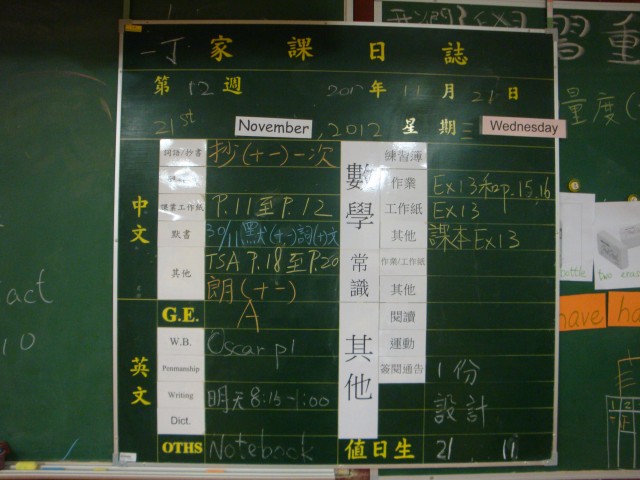 一丁 家課日誌
第12週 2012年11月21日
21st November, 2012 星期三 Wednesday
中文
詞語/抄書 抄(十一)一次
作業工作紙 P.11至P.12
默書 30/11默(十一)詞(十)文
其他 TSA P.18至P.20
朗(十一)
G.E. A
英文
W.B. Oscar p1
Penmanship
Writing 明天8:15-1:00
Dict.
OTHS Notebook
數學
練習簿
作業 Ex13和p.15,16
工作紙 Ex13
其他 課本Ex13
常識
作業/工作紙
其他
其他
閱讀
運動
簽閱通告 1份
設計
值日生 21 11
習重
量度(
bottle
two eras
have
ha
act
10